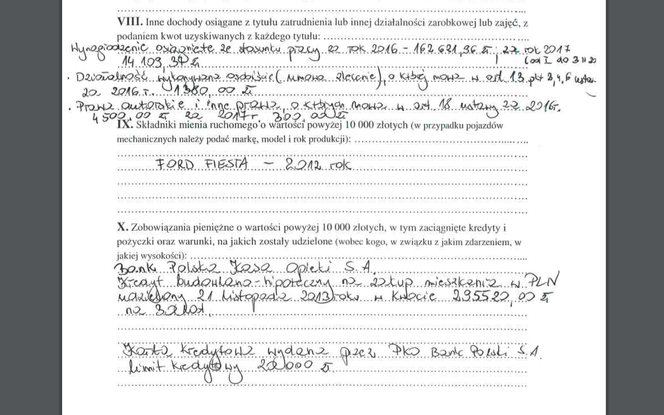 VIII. Inne dochody osiągane z tytułu zatrudnienia lub innej działalności zarobkowej lub zajęć, z
podaniem kwot uzyskiwanych z każdego tytułu:
Wynagrodzenie osiągnięte ze stosunku pracy za rok 2016 - 162.621,36 zł; za rok 2017
14 103,37 zł (od I do 31
• Działalność wykonywana osobiście (umowa zlecenie), o której mowa w art. 13 pkt 2,4,6 ustaw.
za 2016 r. 1380,00 zł
• Prawa autorskie i inne prawa, o których mowa w art. 18 ustawy za 2016r.
4500,00 zł za 2017r. 300,00 zł
IX. Składniki mienia ruchomego o wartości powyżej 10 000 złotych (w przypadku pojazdów
mechanicznych należy podać markę, model i rok produkcji):
FORD FIESTA - 2012 rok
X. Zobowiązania pieniężne o wartości powyżej 10 000 złotych, w tym zaciągnięte kredyty i
pożyczki oraz warunki, na jakich zostały udzielone (wobec kogo, w związku z jakim zdarzeniem, w
jakiej wysokości):
Bank Polska Kasa Opieki S.A.
Kredyt budowlano-hipoteczny na zakup mieszkania w PLN
udzielony 21 listopada 2013 roku w kwocie 295520,00 zł
na 30 lat.
Karta kredytowa wydana przez PKO Bank Polski S.A.
limit kredytowy 20 000 zł